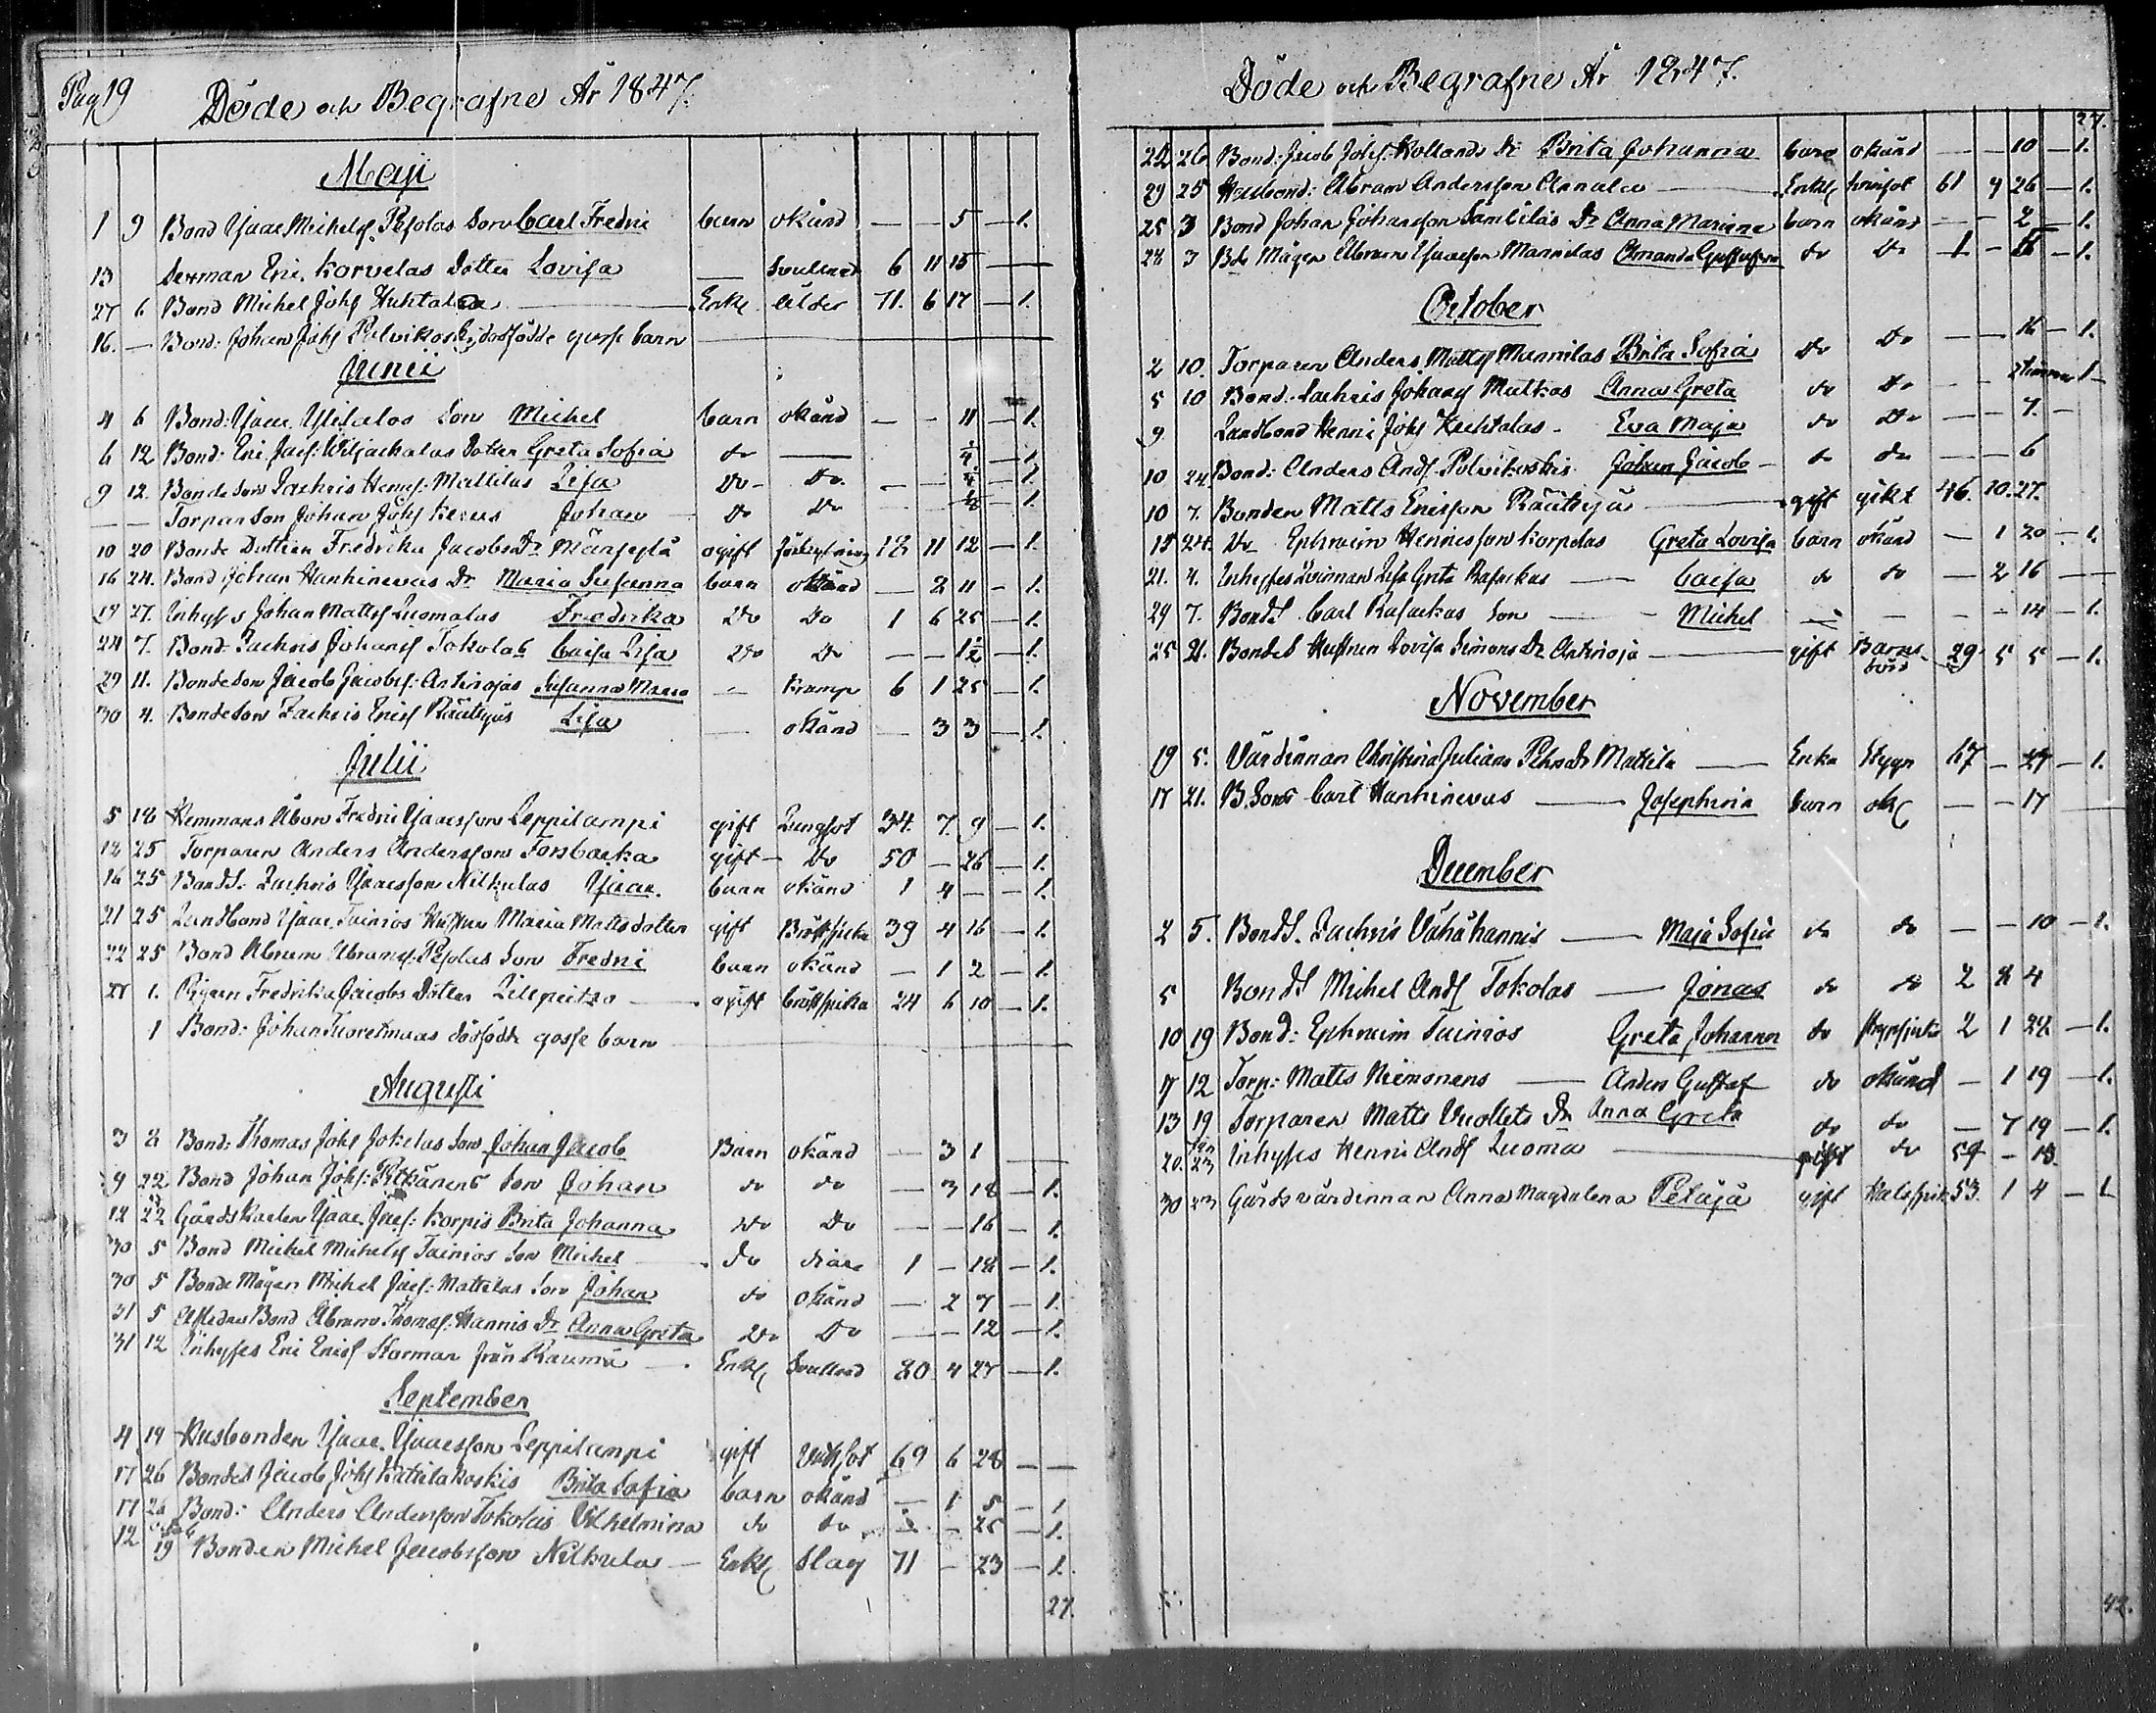 Pag 19
Döde och Begrafne År 1847.
Maji
1 9 Bond Isaac Michelss. Pesolas Son Carl Fredric barn okänd — — 5 — 1.
13 Sexman Eric Korvelas Dotter Lovisa — Svullnad 6 11 15 —
27 6 Bond Michel Johss Huhtala — Enkl. ålder 71. 6 17 — 1.
16. — Bond: Johan Johss Polvikoskis dödfödde gosse barn
Junii
4 6 Bond: Isaac Ylitalos Son Michel barn okänd — — 11 — 1.
6 12 Bond: Eric Jacss: Wiljackalas Dotter Greta Sofia do — 1/4 — 1
9 12. Bonde Son Zachris Henrss: Mattilas Lisa Do Do — — 1/4 — 1.
— — Torpar Son Johan Johss Johan Do Do 1.
10 20 Bonde Dottren Fredrika Jacobs Dr ogift 18 11 12 — 1.
16 24. Bond Johan Hanhinevas Dr Maria Susanna barn okänd — 2 11 — 1.
27. Inhyses Johan Mattss Luomalas Fredrika Do Do 1 6 25 — 1.
24 7. Bond Zachris Johanss Tokolas Caisa Lisa Do Do — — 1/2 — 1.
29 11. Bonde Son Jacob Jacobss: Antinojas Susanna Maria — Kramp 6 1 25 — 1.
30 4. Bonde Son Zachris Ericss Räuthyus Lisa — okänd — 3 3 — 1.
Julii
5 18 Hemmans Åbon Fredric Isaacsson Leppilampi gift Lungsot 34. 7. 9 — 1.
12 25 Torparen Anders Andersson Forsbacka gift Do 50 — 26 — 1.
16 25 BondS: Zachris Isaacsson Nilkulas Isaac. barn okänd 1 4 — — 1.
21 25 Landbond Isaac Tainios Hustrun Maria Matts dotter gift Bröstsjuka 39 4 16 — 1.
22 25 Bond Abram Abramss: Pesolas Son Fredric barn okänd — 1 2 — 1.
27 1. Pigan Fredrika Jacobs Dotter — ogift bröstsjuka 24 6 10 — 1.
1 Bond: Johan Tuoretmaas dödfödde gosse barn
Augusti
3 8 Bond: Thomas Johss Jokelas Son Johan Jacob Barn okänd — 3 1
9 22 Bond Johan Johss: Pitkänens Son Johan do do — 3 18 — 1.
12 22 Gårds Karlen Isaac Jacss: Korpis Brita Johanna Do Do — — 16 — 1.
30 5 Bond Michel Michelss Tainios Son Michel Do diarr 1 — 18 — 1.
30 5 Bonde Mågen Michel Jacss: Mattilas Son Johan do okänd — 2 7 — 1.
31 5 Afledne Bond Abram Thomass: Hannis Dr Anna Greta Do Do — — 12 — 1.
31 12 Inhyses Eric Ericss Storman från Rauma — Enkl. Svullnad 80 4 27 — 1.
September
4 19 Husbonden Isaac Isaacsson Leppilampi gift 69 6 28 — —
17 26 BondeS Jacob Johss Kattilakoskis Brita Sofia barn okänd — 1 5 — 1
17 26 Bond: Anders Andersson Tokolas Vilhelmina do do — — 25 — 1.
12 19 Bonden Michel Jacobsson Nilkula — Enkl. Slag 71 — 23 — 1.
27.
Döde och Begrafne År 1847.
27.
22 26 Bond: Jacob Johss: Kollands Dr Brita Johanna barn okänd — — 10 — 1.
29 25 Husbond: Abram Andersson Annala — Enkl. 61 4 26 — 1.
25 3 Bond Johan Johansson Dr Anna Mariana barn okänd — — 2 — 1.
28 3 Bde Mågen Abram Isaacson Mannilas Amanda Gustafva do Do 1 — — 1.
October
2 10. Torparen Anders Mattss Mannilas Brita Sofia Do Do — — 16 — 1.
5 10 Bond. Zachris Johanss Matkas Anna Greta do Do — — 1
9 Landbond Henric Johss Huhtalas — Eva Maja do Do — — 7. —
10 24. Bond: Anders Andss. Polvikoskis Johan Jacob do do — — 6
10 7. Bonden Matts Ericsson — gift gikt 46. 10. 27.
18 24. Do Ephraim Henricsson Korpelas Greta Lovisa barn okänd — 1 20 — 1.
21. 4. Inhyses Qvinnan Lisa Greta — Caisa do do — 2 16 —
29 7. BondS Carl Son — Michel — — — 14 — 1.
25 21. BondeS Hustrun Lovisa Simons Dr Antinoja — gift Barnsbörd 29 5 5 — 1.
November
19 5. Värdinnan Christina Juliana Pehrs Dr Mattila — Enka Stygn 67 — — 1.
17 21. B. Son Carl Hanhinevas — Josephina barn ok. — — 17
December
2 5. BondS. Zachris Vähähannis — Maja Sofia do do — — 10 — 1.
5 BondS Michel Andss Tokolas — Jonas do do 2 8 4
10 19 Bond: Ephraim Tainios Greta Johanna do 2 1 22 — 1.
7 12 Torp: Matts Niemonens — Anders Gustaf do okänd — 1 19 — 1.
13 19 Torparen Matts Vuollets Dr Anna Greta do do — 7 19 — 1.
20. Jan 23 Inhyses Henric Andss Luoma — gift do 59 — 18.
30 23 Gårds värdinnan Anna Magdalena Petäjä gift 53. 1 4 — 1
42.